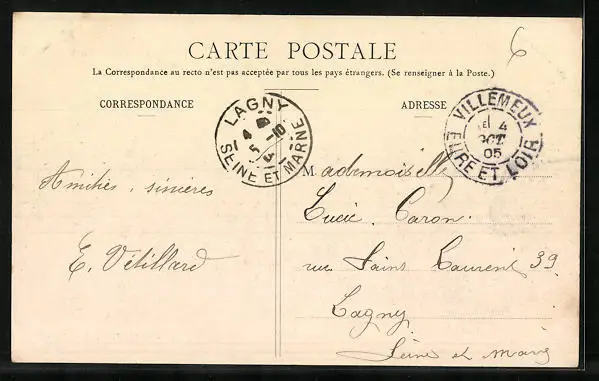 6
CARTE POSTALE
La Correspondance au recto n'est pas acceptée par tous les pays étrangers. (Se renseigner à la Poste.)
CORRESPONDANCE
ADRESSE
LAGNY
5 -10
SEINE ET MARNE
VILLEMEUX
4
OCT
05
EURE ET LOIR
Amitiés sincères
E. Vétillard
Mademoiselle
Lucie Caron.
rue Saint Laurent 39
Lagny
Seine et Marne